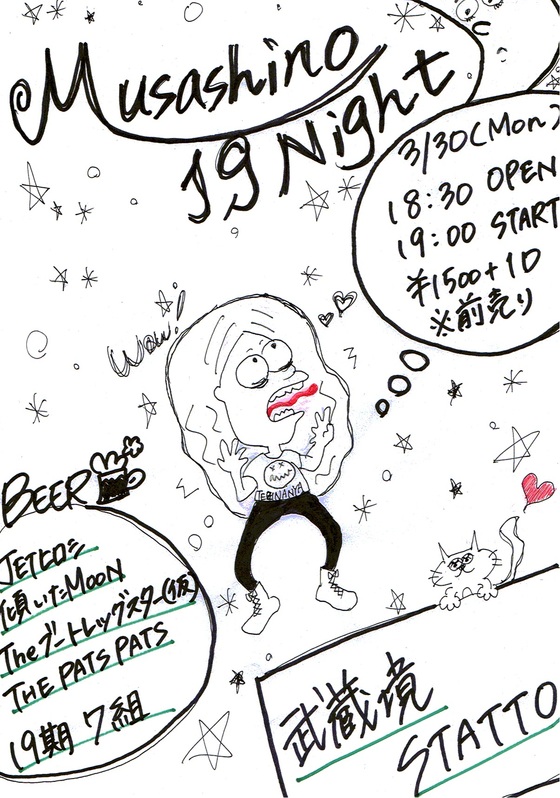 Musashino
19 Night
3/30(Mon)
18:30 OPEN
19:00 START
¥1500+1D
※前売り
Wow!
BEER
JETヒロシ
傾いたMOON
Theブートレッグスター(仮)
THE PATS PATS
19期7組
武蔵境
STATTO